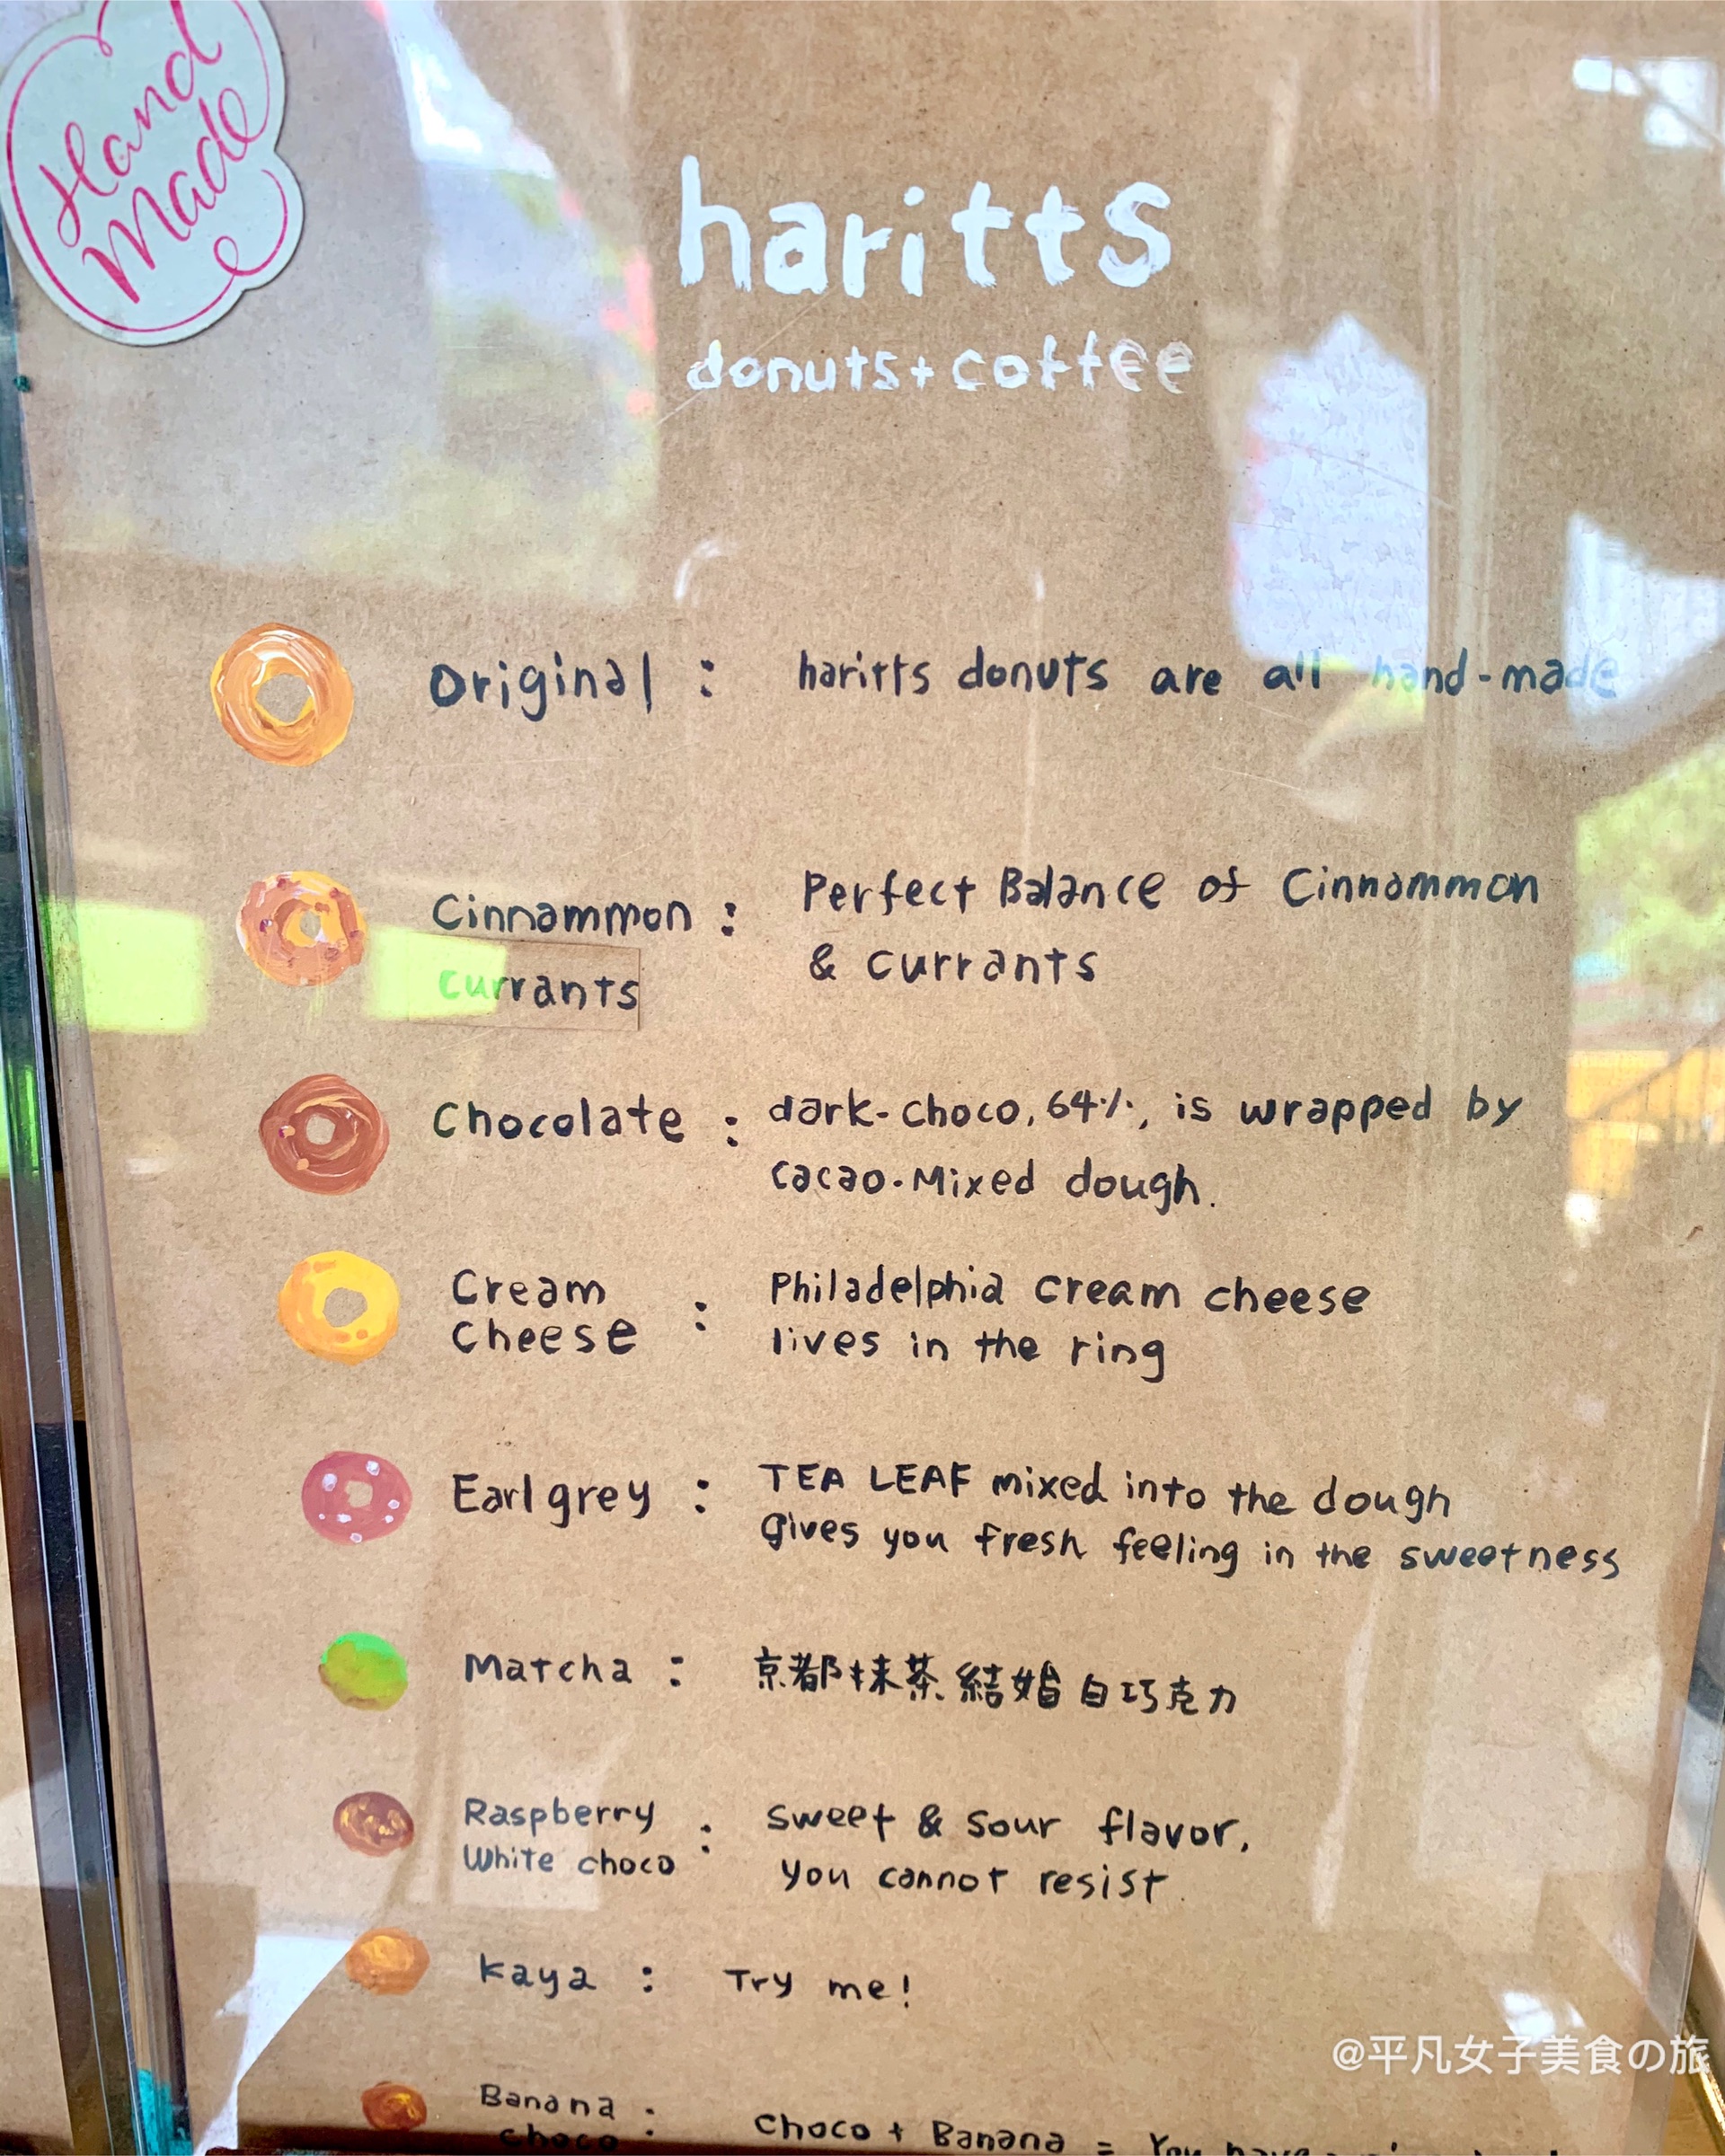 Hand
Made
haritts
donuts+coffee
Original : haritts donuts are all hand-made
Cinnammon : Perfect Balance of Cinnammon
currants & currants
Chocolate : dark-choco, 64%, is wrapped by
cacao-Mixed dough.
Cream Philadelphia cream cheese
Cheese : lives in the ring
Earl grey : TEA LEAF mixed into the dough
gives you fresh feeling in the sweetness
Matcha : 京都抹茶結婚白巧克力
Raspberry : sweet & sour flavor,
White choco you cannot resist.
kaya : Try me!
Banana :
choco choco + Banana = You have
@平凡女子美食の旅